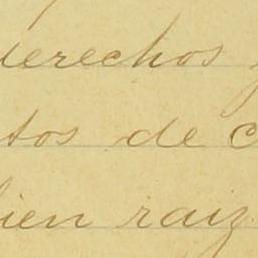 derechos y
tos de c
bien raiz